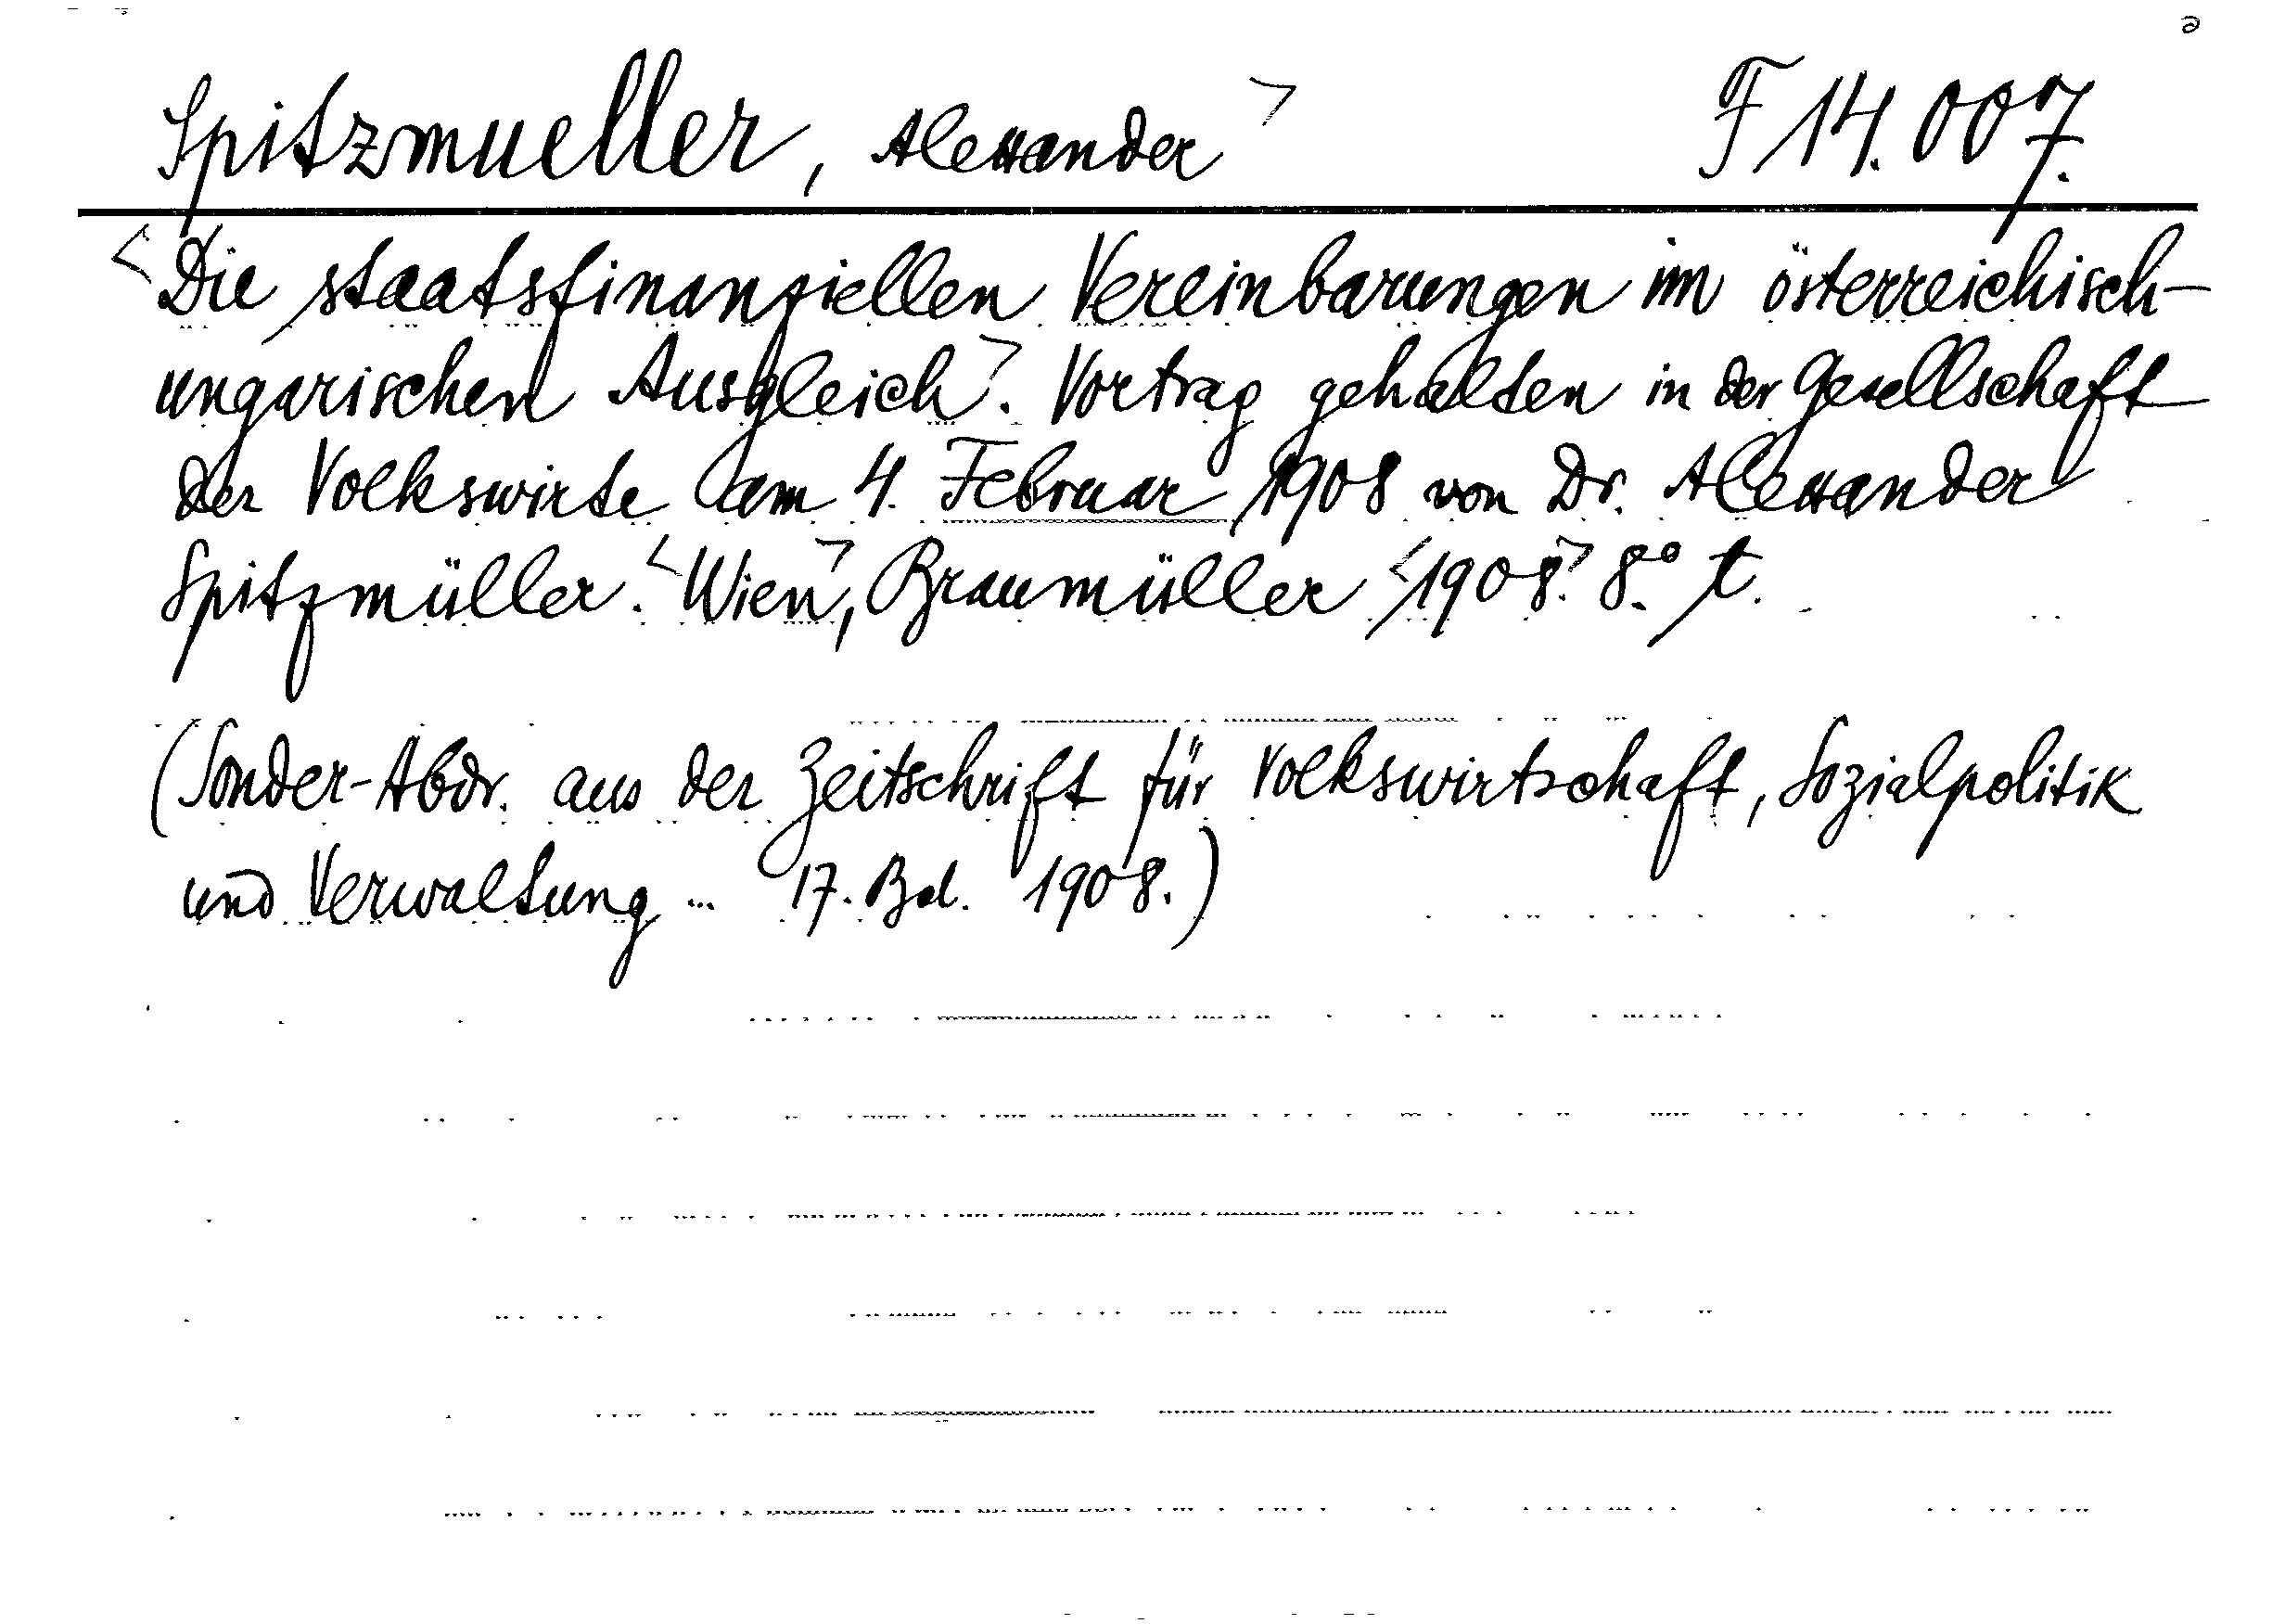 Spitzmueller, Alexander> F 14.007.
<Die staatsfinanziellen Vereinbarungen im österreichisch-
ungarischen Ausgleich>. Vortrag gehalten in der Gesellschaft
der Volkswirte am 4. Februar 1908 von Dr. Alexander
Spitzmüller. <Wien>, Braumüller <1908>. 8° t.
(Sonder-Abdr. aus der Zeitschrift für Volkswirtschaft, Sozialpolitik
und Verwaltung ... 17. Bd. 1908.)